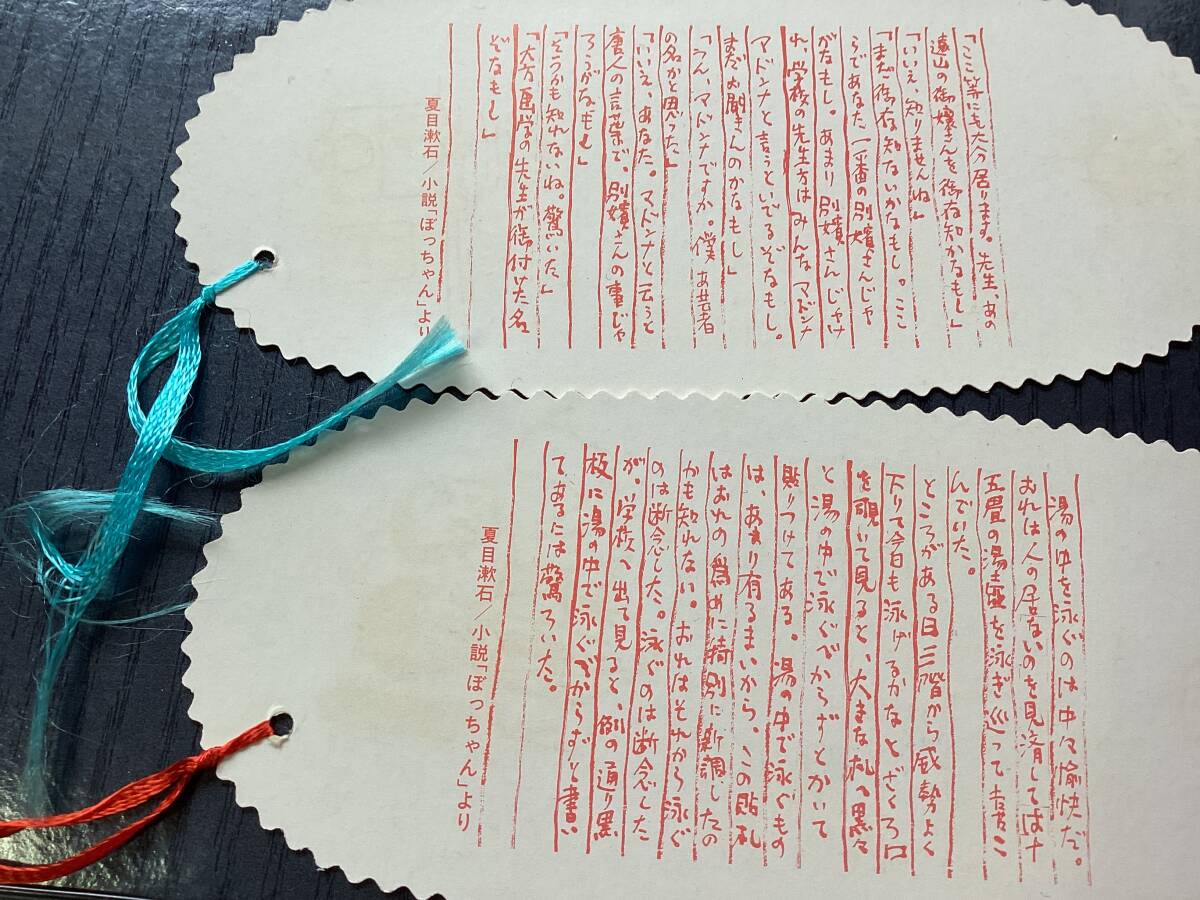 「ここ等にも大分居ります。先生、あの
遠山の御嬢さんを御存知かなもし」
「いいえ、知りませんね」
「まだ御存知ないかなもし。ここ
らであなた一番の別嬪さんじゃ
がなもし。あまり別嬪さんじゃけ
れ、学校の先生方はみんなマドンナ
マドンナと言うといでるぞなもし。
まだお聞きんのかなもし」
「うん、マドンナですか。僕あ芸者
の名かと思った」
「いいえ、あなた。マドンナと云うと
唐人の言葉で、別嬪さんの事じゃ
ろうがなもし」
「そうかも知れないね。驚いた」
「大方画学の先生が御付けた名
ぞなもし」
夏目漱石/小説「ぼっちゃん」より
湯の中を泳ぐのは中々愉快だ。
おれは人の居ないのを見済しては十
五畳の湯壺を泳ぎ巡って喜こ
んでいた。
ところがある日三階から威勢よく
下りて今日も泳げるかなとざくろ口
を覗いて見ると、大きな札へ黒々
と湯の中で泳ぐべからずとかいて
貼りつけてある。湯の中で泳ぐもの
は、あまり有るまいから、この貼札
はおれの為めに特別に新調したの
かも知れない。おれはそれから泳ぐ
のは断念した。泳ぐのは断念した
が、学校へ出て見ると、例の通り黒
板に湯の中で泳ぐべからずと書い
てあるには驚ろいた。
夏目漱石/小説「ぼっちゃん」より